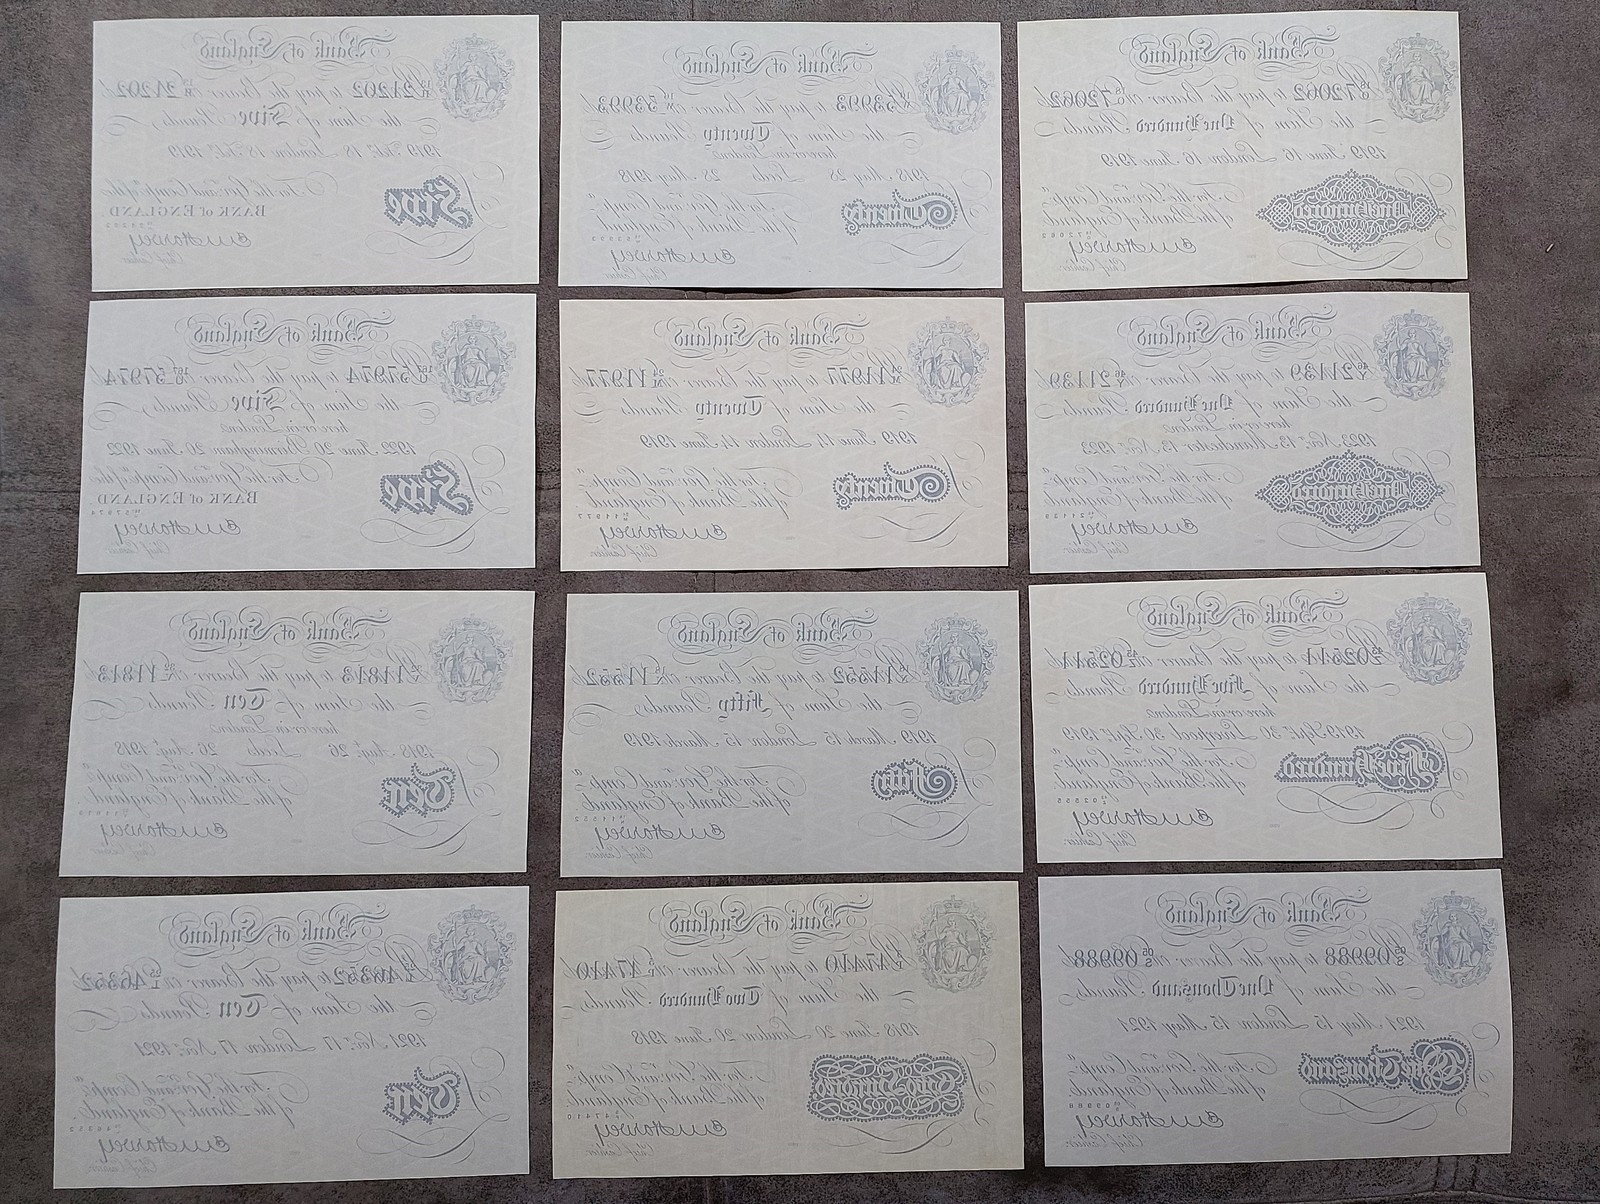 Bank of England
21202 to pay the Bearer on 21202
the Sum of Five Pounds
1919 Feb. 18 London 18 Feb. 1919
For the Gov.r and Comp.a of the
BANK of ENGLAND.
Five
E M Harvey
Chief Cashier.
Bank of England
53993 to pay the Bearer on 53993
the Sum of Twenty Pounds
here or in London
1918 May 28 Leeds 28 May 1918
For the Gov.r and Comp.a
of the Bank of England.
Twenty
E M Harvey
Chief Cashier.
Bank of England
72062 to pay the Bearer on 72062
the Sum of One Hundred Pounds
1919 June 16 London 16 June 1919
For the Gov.r and Comp.a
of the Bank of England.
One Hundred
E M Harvey
Chief Cashier.
Bank of England
57974 to pay the Bearer on 57974
the Sum of Five Pounds
here or in London
1922 June 20 Birmingham 20 June 1922
For the Gov.r and Comp.a of the
BANK of ENGLAND.
Five
E M Harvey
Chief Cashier.
Bank of England
to pay the Bearer on
the Sum of Twenty Pounds
1919 June 14 London 14 June 1919
For the Gov.r and Comp.a
of the Bank of England.
Twenty
E M Harvey
Chief Cashier.
Bank of England
21139 to pay the Bearer on 21139
the Sum of One Hundred Pounds
here or in London
1923 Nov.r 13 Manchester 13 Nov.r 1923
For the Gov.r and Comp.a
of the Bank of England.
One Hundred
E M Harvey
Chief Cashier.
Bank of England
to pay the Bearer on
the Sum of Ten Pounds
here or in London
1918 Aug.t 26 Leeds 26 Aug.t 1918
For the Gov.r and Comp.a
of the Bank of England.
Ten
E M Harvey
Chief Cashier.
Bank of England
to pay the Bearer on
the Sum of Fifty Pounds
1919 March 15 London 15 March 1919
For the Gov.r and Comp.a
of the Bank of England.
Fifty
E M Harvey
Chief Cashier.
Bank of England
to pay the Bearer on
the Sum of Five Hundred Pounds
here or in London
1919 Sept.r 30 Liverpool 30 Sept.r 1919
For the Gov.r and Comp.a
of the Bank of England.
Five Hundred
E M Harvey
Chief Cashier.
Bank of England
46352 to pay the Bearer on 46352
the Sum of Ten Pounds
1921 Nov.r 17 London 17 Nov.r 1921
For the Gov.r and Comp.a
of the Bank of England.
Ten
E M Harvey
Chief Cashier.
Bank of England
47410 to pay the Bearer on 47410
the Sum of Two Hundred Pounds
1918 June 20 London 20 June 1918
For the Gov.r and Comp.a
of the Bank of England.
Two Hundred
E M Harvey
Chief Cashier.
Bank of England
09988 to pay the Bearer on 09988
the Sum of One Thousand Pounds
1921 May 15 London 15 May 1921
For the Gov.r and Comp.a
of the Bank of England.
One Thousand
E M Harvey
Chief Cashier.